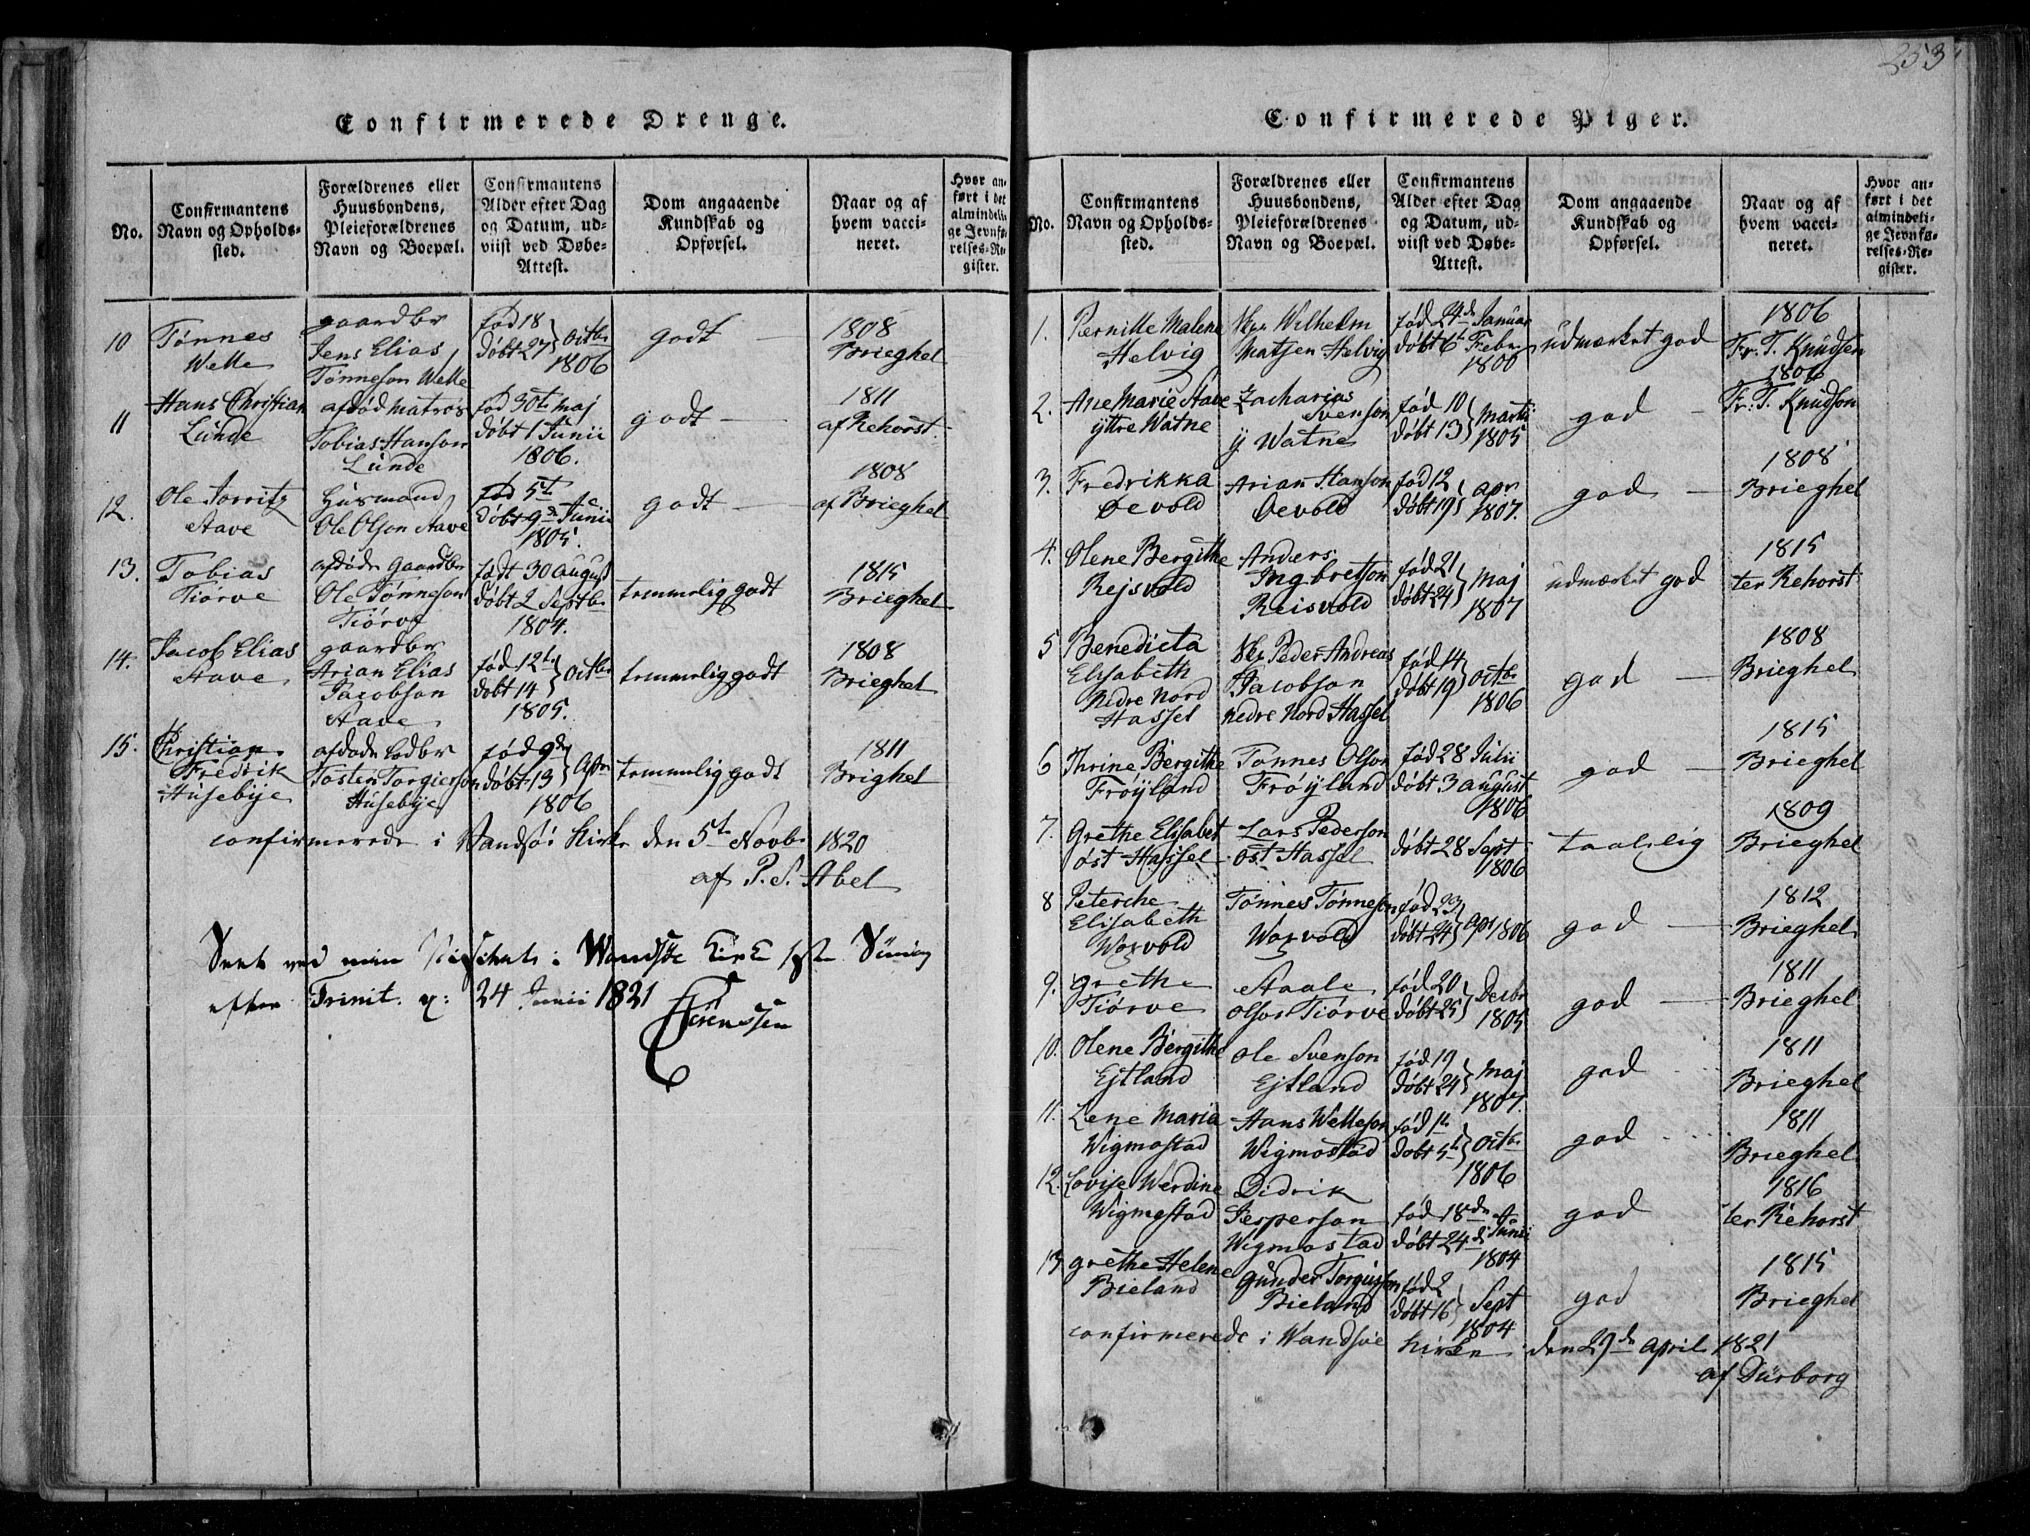 253
Confirmerede Drenge.
No.
Confirmantens
Navn og Opholds-
sted.
Forældrenes eller
Huusbondens,
Pleieforældrenes
Navn og Boepæl.
Confirmantens
Alder efter Dag
og Datum, ud-
viist ved Døbe-
Attest.
Dom angaaende
Kundskab og
Opførsel.
Naar og af
hvem vacci-
neret.
Hvor an-
ført i det
almindeli-
ge Jevnfø-
relses-Re-
gister.
10
Tønnes
Welle
gaardbr
Jens Elias
Tønneson Welle
fød 18
døbt 27 } Octbr
1806
godt
1808
Brieghel
11
Hans Christian
Lunde
afdød matros
Tobias Hanson
Lunde
fød 30te maj
døbt 1 Junii
1806.
godt
1811
af Rehorst.
12.
Ole
Aave
Husmand
Ole Olson Aave
fød 5te
døbt 9de Junii
1805.
godt
1808
af Brieghel
13.
Tobias
Tiørve
afdøde gaardbr
Ole Tønneson
Tiørve
født 30 august
døbt 2 Septbr
1804.
temmelig godt
1815
Brieghel
14.
Jacob Elias
Aave
gaardbr
Arian Elias
Jacobson
Aave
fød 12te
døbt 14 } Octbr
1805.
temmelig godt
1808
Brieghel
15.
Christian
Fredrik
Husebye
afdøde
Tosten Torgierson
Husebye
fød 9de
døbt 13 } Apr
1806
temmelig godt
1811
Brighel
confirmerede i Vandsø Kirke den 5te Novbr 1820
af P. S. Abel
Seet ved min i Wandsøe Kirke 1ste Søndag
efter Trinit. 24 Junii 1821
Sørenssen
Confirmerede Piger.
No.
Confirmantens
Navn og Opholds-
sted.
Forældrenes eller
Huusbondens,
Pleieforældrenes
Navn og Boepæl.
Confirmantens
Alder efter Dag
og Datum, ud-
viist ved Døbe-
Attest.
Dom angaaende
Kundskab og
Opførsel.
Naar og af
hvem vacci-
neret.
Hvor an-
ført i det
almindeli-
ge Jevnfø-
relses-Re-
gister.
1.
Pernille Malene
Helvig
Wilhelm
Matsen Helvig
fød 24de Januar
døbt 6te Febr
1800
udmærket god
1806
Fr. T. Knudsen
2.
Ane Marie Aave
yttre Watne
Zacharias
Svenson
y Watne
fød 10
døbt 13 } Marti
1805
god
1806
Fr. T. Knudson
3.
Fredrikka
Øevold
Arian Hanson
Øevold
fød 12
døbt 19 } apr
1807.
god
1808
Brieghel
4.
Olene Bergithe
Rejsvold
Anders
Ingbretson
Reisvold
fød 21
døbt 24 } maj
1807
udmærket god
1815
ter Rehorst
5
Benedicta
Elisabeth
Nedre Nord
Hassel
Peder Andreas
Jacobson
nedre Nord Hassel
fød 14
døbt 19 } Octbr
1806
god
1808
Brieghel
6
Thrine Bergithe
Frøyland
Tønnes Olson
Frøyland
fød 28 Julii
døbt 3 august
1806
god
1815
Brieghel
7.
Grethe Elisabet
øst Hassel
Lars Pederson
øst Hassel
døbt 28 Sept
1806
taalelig
1809
Brieghel
8
Peterche
Elisabeth
Worvold
Tønnes Tønneson
Worvold
fød 23
døbt 24 } Apr 1806
god
1812
Brieghel
9.
Grethe
Tiørve
Staale
Olson Tiørve
fød 20
døbt 25 } Decbr
1805
god
1811
Brieghel
10.
Olene Bergithe
Ejtland
Ole Svenson
Ejtland
fød 19
døbt 24 } maj
1807.
god
1811
Brieghel
11.
Lene Maria
Wigmostad
Hans Welleson
Wigmostad
fød 1te
døbt 5te } Octbr
1806
god
1811
Brieghel
12.
Lovise Werdine
Wigmostad
Didrik
Jesperson
Wigmostad
fød 18de
døbt 24de Junii
1804
god
1816
ter Rehorst
13
Grethe Helene
Bieland
Gunder Torguson
Bieland
fød 2
døbt 16 } Sept
1804
god
1815
Brieghel
confirmerede i Wandsøe Kirken den 29de April 1821
af Dürborg